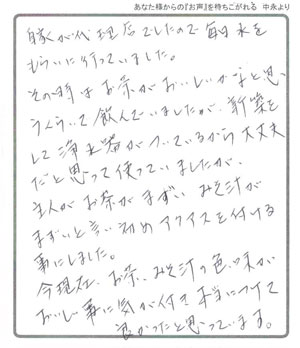 あなた様からの『お声』を待ちこがれる 中永より
嫁が代理店でしたので毎日水を
もらいに行っていました。
その時はお茶がおいしいかなと思い
つくづく飲んでいましたが、新築を
して浄水器がついているから大丈夫
だと思って使っていましたが、
主人がお茶がまずい みそ汁が
まずいと言い初めアクアスを付ける
事にしました。
今現在、お茶、みそ汁の色、味が
おいしい事に気が付き本当につけて
良かったと思っています。